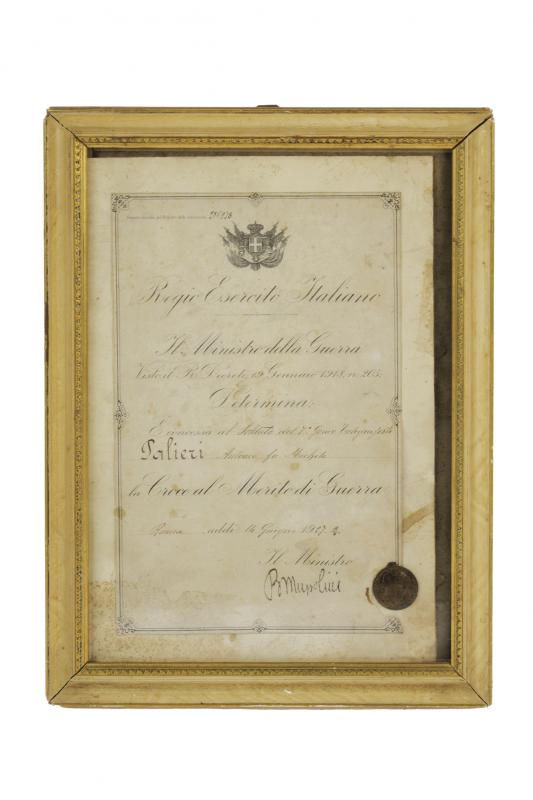 Regio Esercito Italiano
Il Ministro della Guerra
Visto il R. Decreto, 19 Gennaio 1918, n. 205;
Determina:
È concessa al Soldato del 7°
Palieri Antonio fu Michele
la Croce al Merito di Guerra
Roma addì 14 Giugno 1927
Il Ministro